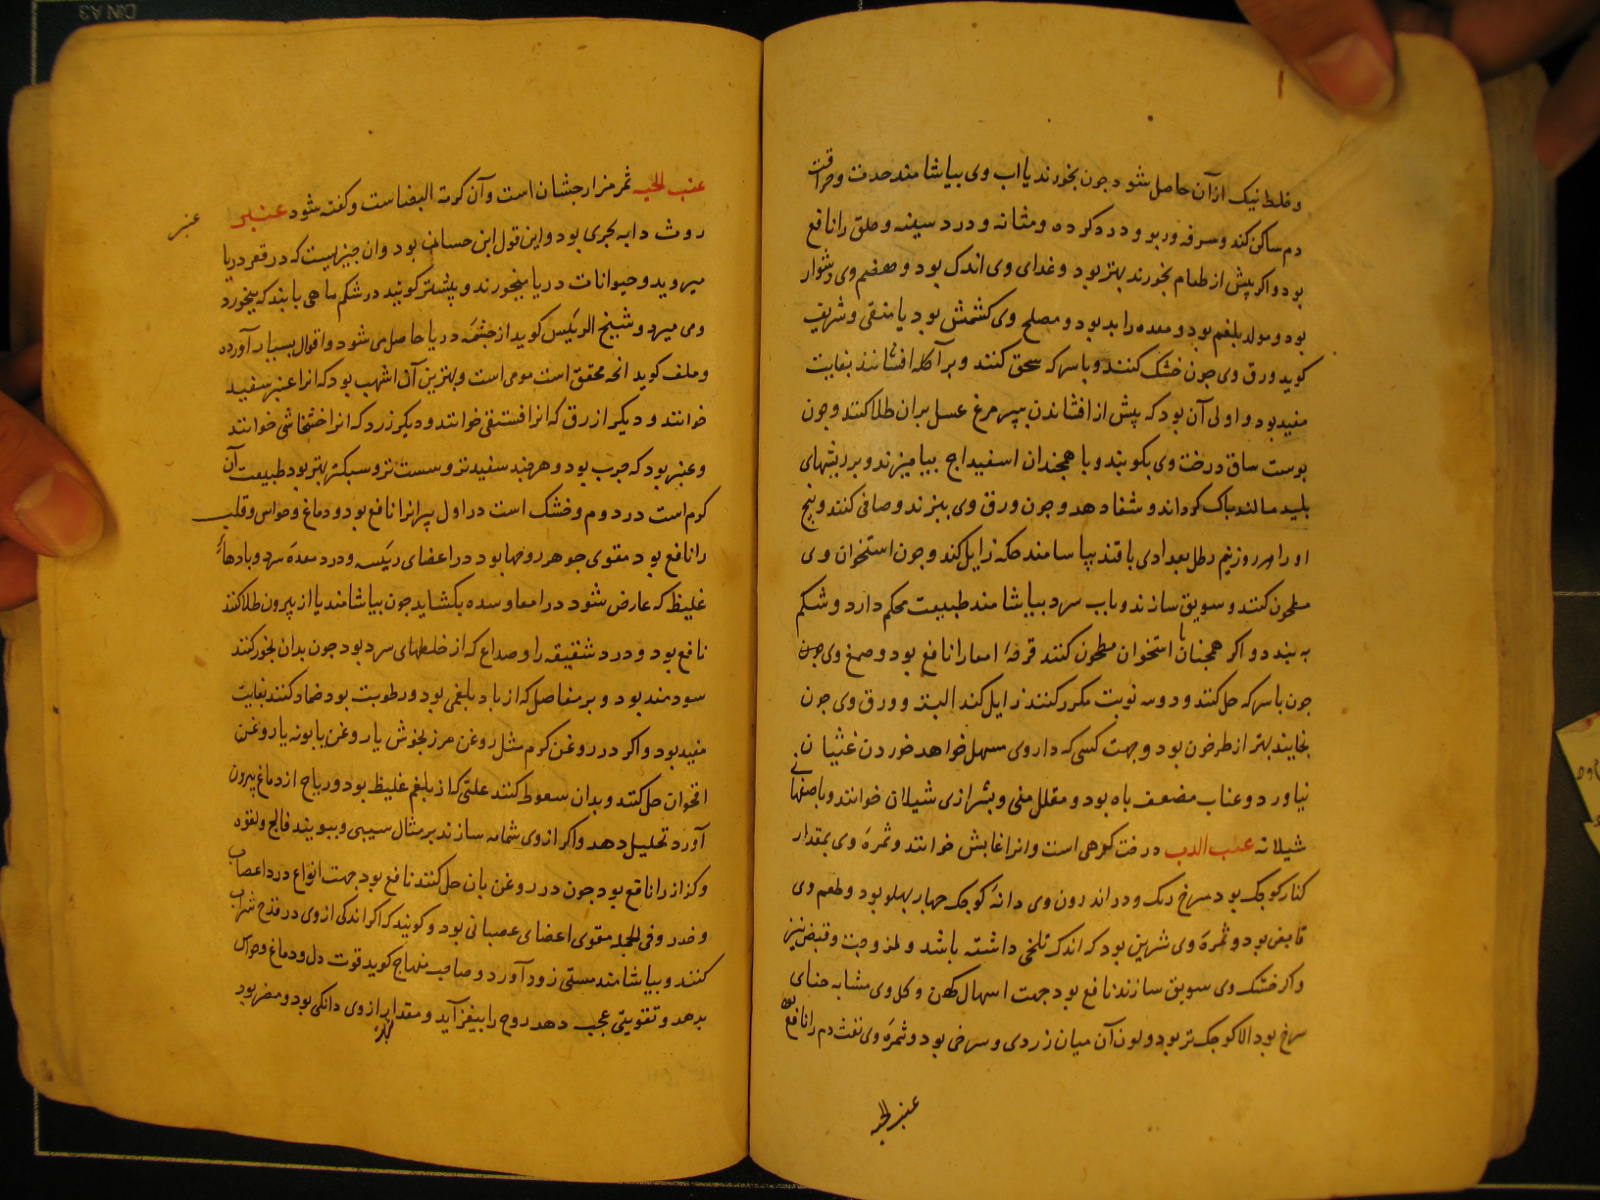 و خلط نیک از آن حاصل شود جون بخورند یا اب وی بیاشامند حدت و حراقت
دم ساکن کند و سرفه و ربو و درد کرده و مثانه و درد سینه و حلق را نافع
بود و اکر پیش از طعام بخورند بهتر بود و غدای وی اندک بود و هضم وی دشوار
بود و مولد بلغم بود و معده را بد بود و مصلح وی کشمش بود یا منقی و شریف
کوید ورق وی جون خشک کنند و با سرکه سحق کنند و بر آکله افشانند بغایت
مفید بود و اولی آن بود که پیش از افشاندن بپر مرغ عسل بران طلا کنند و جون
بوست ساق درخت وی بکوبند و با همجندان اسفیداج بیامیزند و بر ریشهای
بلید مالند پاک کرداند و شفا دهد و جون ورق وی بپزند و صافی کنند و پنج
او را هر روز نیم رطل بعدادی با قند بیاسامند حکه زایل کند و جون استخوان وی
مطحون کنند و سویق سازند و باب سرد بیاشامند طبیعت محکم دارد و شکم
به بندد و اکر همجنان با استخوان مطحون کنند قرحهٔ امعا را نافع بود و صمغ وی جون
جون با سرکه حل کنند و دو سه نوبت مکرر کنند زایل کند البته و ورق وی جون
بخایند بهتر از طرخون بود و جهت کسی که داروی مسهل خواهد خوردن غثیان
نیاورد و عناب مضعف باه بود و مقلل منی و بشیرازی شیلان خوانند و باصفهانی
شیلانه عنب الدب درخت کوهی است و انرا غابش خوانند و ثمرهٔ وی بمقدار
کنار کوجک بود سرخ رنک و در اندرون وی دانهٔ کوجک جهار بهلو بود و طعم وی
قابض بود و ثمرهٔ وی شرین بود که اندک تلخی داشته باشد و لزوجت و قبض نیز
و اکر خشک وی سویق سازند نافع بود جهت اسهال کهن و کل وی مشابه حنای
سرخ بود الا کوجک تر بود و لون آن میان زردی و سرخی بود و ثمرهٔ وی نفث دم را نافع بود
عنب الحیه
عنب الحیه ثمر هزارجشان است و آن کرمة البیضاست و کفته شود عنبر
عنبر
روث دابه بحری بود و این قول ابن حسان بود وان جیزیست که در قعر دریا
میروید و حیوانات دریا میخورند و بیشتر کویند در شکم ماهی یابند که میخورد
و می میرد و شیخ الرئیس کوید از جشمهٔ دریا حاصل می شود و اقوال بسیار آورده
و ملف کوید انچه محقق است مومی است و بهترین آن اشهب بود که انرا عنبر سفید
خوانند و دیکر ازرق که انرا فستقی خوانند و دیکر زرد که انرا خشخاشی خوانند
و عنبر بود که جرب بود و هر جند سفیدتر و سست تر و سبکتر بهتر بود طبیعت آن
کرم است در دوم و خشک است در اول پیرانرا نافع بود و دماغ و حواس و قلب
را نافع بود مقوی جوهر روحها بود در اعضای رئیسه و درد معده سرد و بادهاء
غلیظ که عارض شود در امعا و سده بکشاید جون بیاشامند یا از بیرون طلا کنند
نافع بود و درد شقیقه را و صداع که از خلطهای سرد بود جون بدان بخور کنند
سودمند بود و بر مفاصل که از باد بلغمی بود و رطوبت بود ضماد کنند بغایت
مفید بود و اکر در روغن کرم مثل روغن مرزنجوش یا روغن بابونه یا روغن
اقحوان حل کنند و بدان سعوط کنند علتی که از بلغم غلیظ بود و ریاح از دماغ بیرون
آورد تحلیل دهد و اکر از وی شمامه سازند بر مثال سیبی و ببویند فالج و لقوه
و کزاز را نافع بود جون در روغن بان حل کنند نافع بود جهت انواع درد اعصاب
و خدر و فی الجمله مقوی اعضای عصبانی بود و کویند که اکر اندکی از وی در قدح شراب
کنند و بیاشامند مستی زود آورد و صاحب منهاج کوید قوت دل و دماغ و حواس
بدهد و تقویتی عجب دهد روح را بیفزاید و مقدار از وی دانکی بود و مضر بود